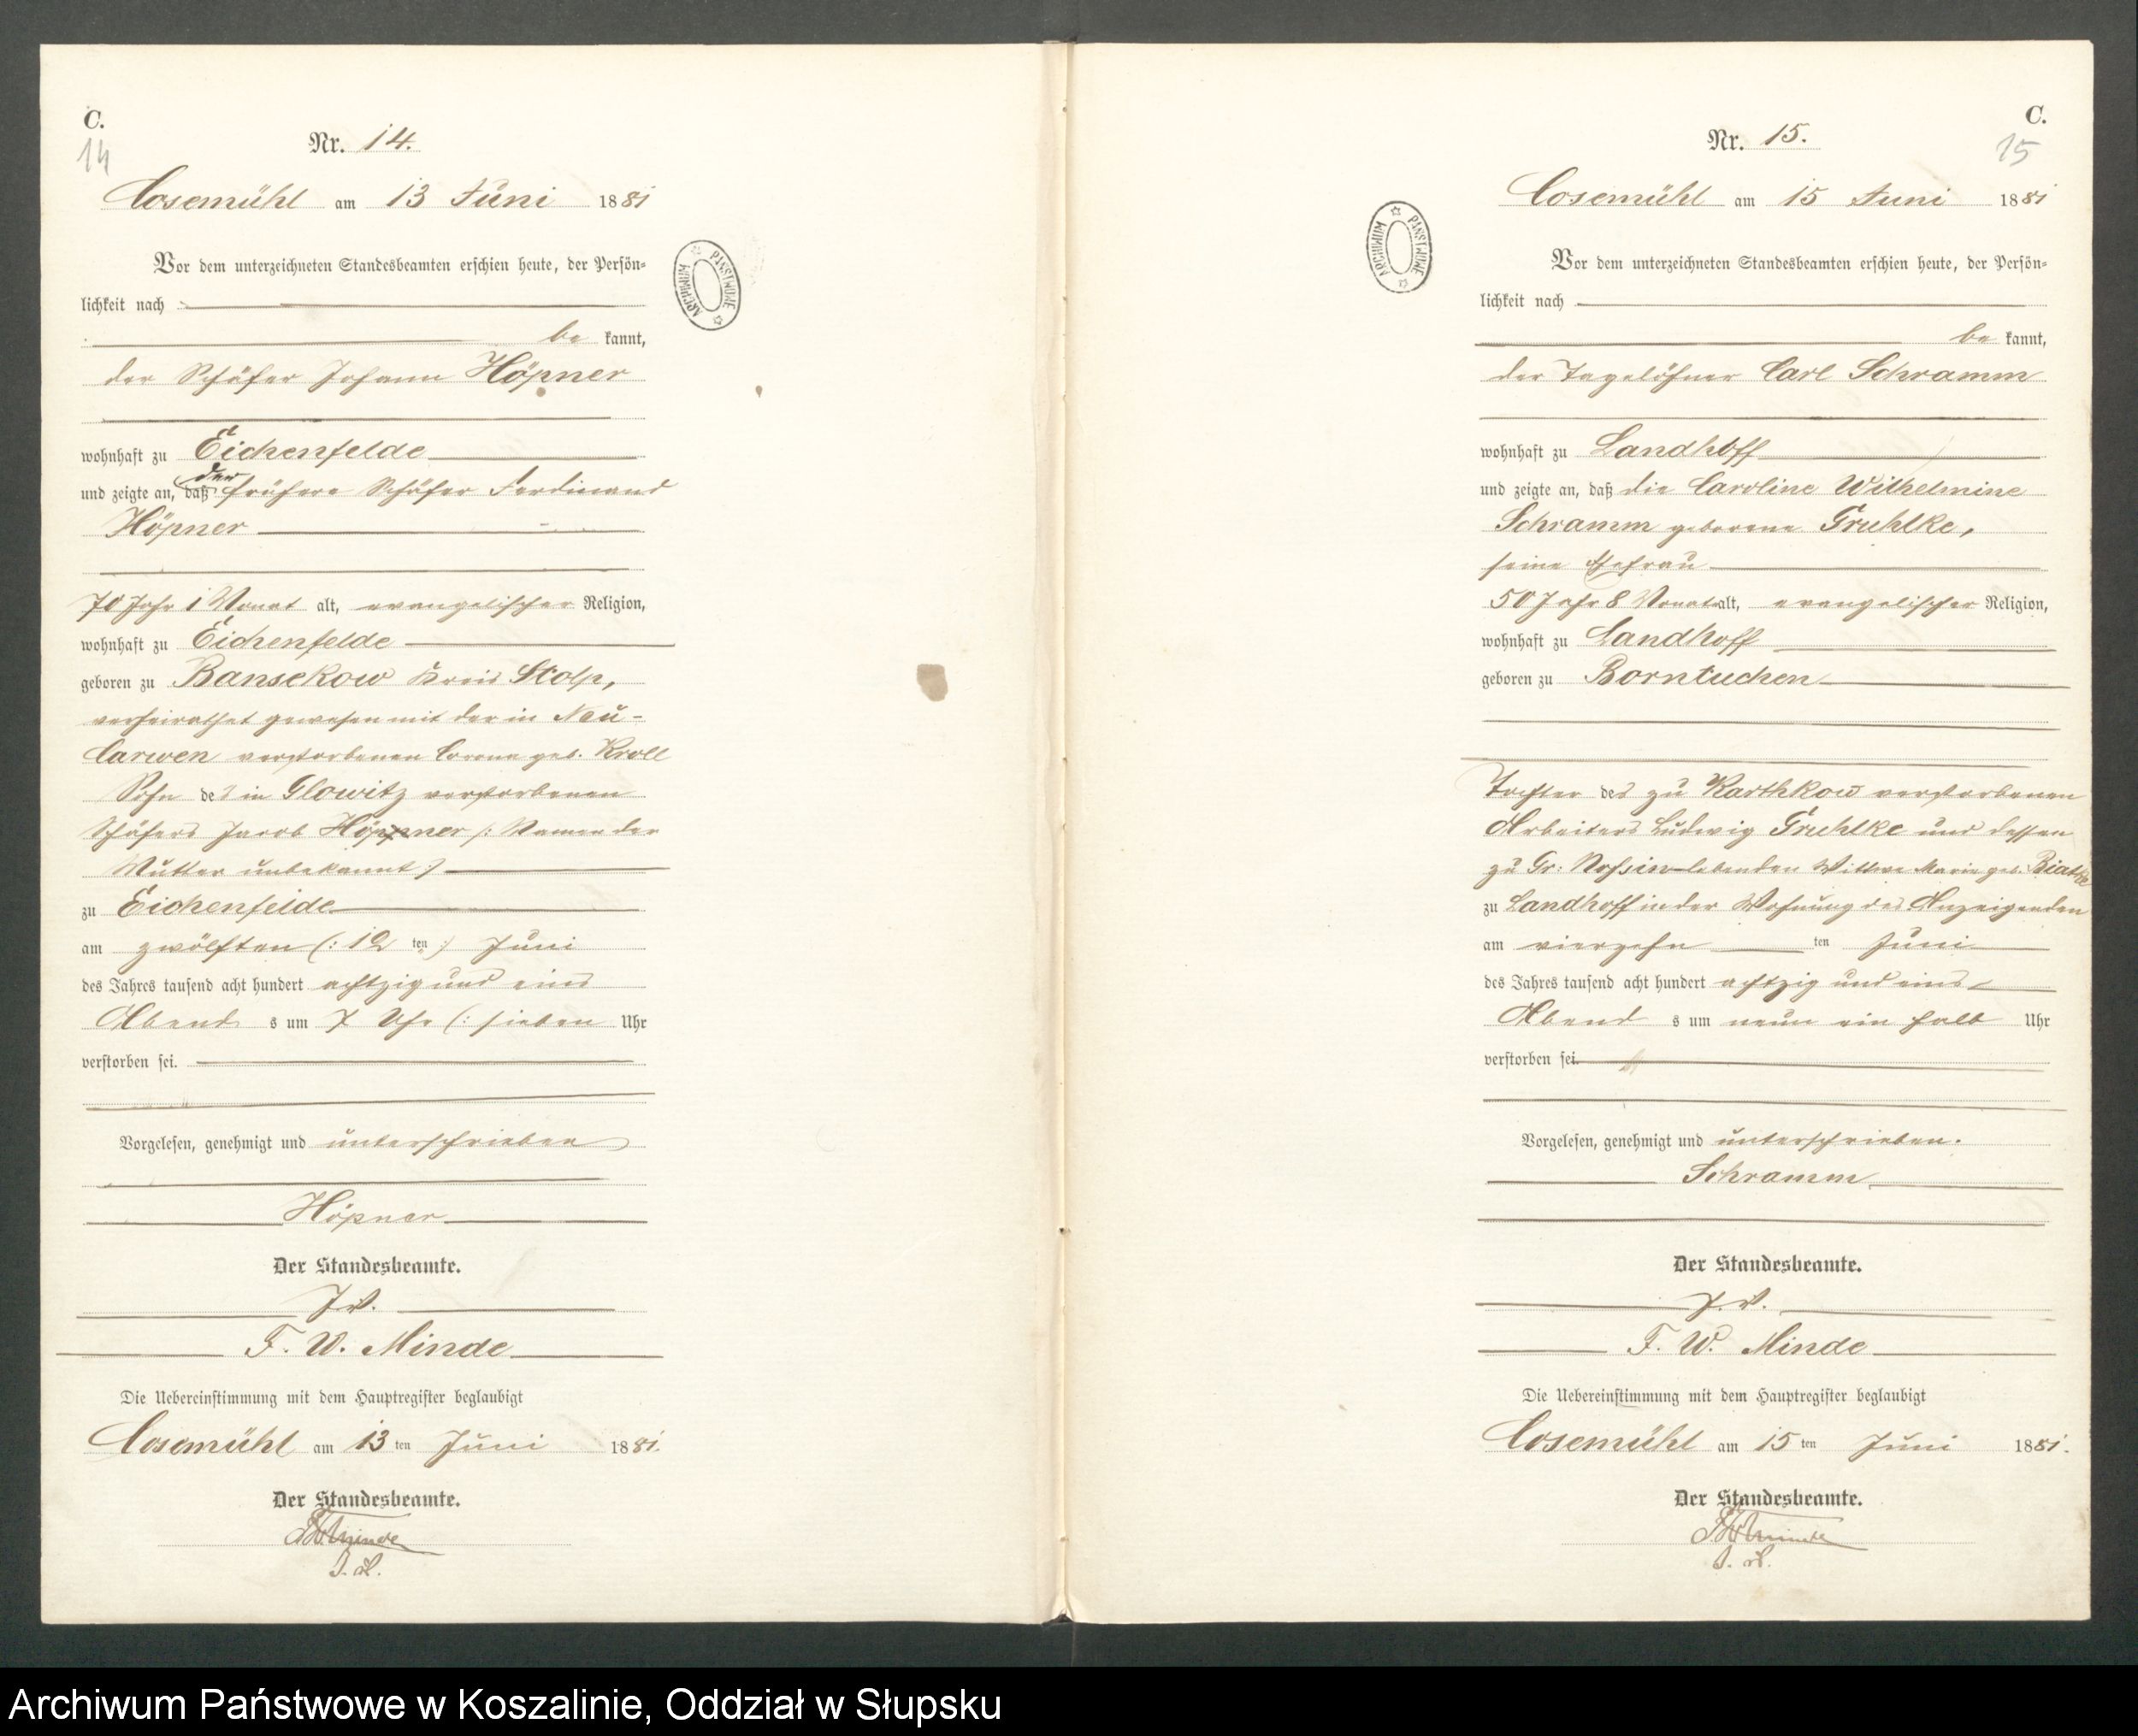 C.
14
Nr. 14.
Cosemühl am 13 Juni 1881
Vor dem unterzeichneten Standesbeamten erschien heute, der Persön-
lichkeit nach
be kannt,
der Schäfer Johann Höpner
wohnhaft zu Eichenfelde
der
und zeigte an, daß frühere Schäfer Ferdinand
Höpner
70 Jahr 1 Monat alt, evangelischer Religion,
wohnhaft zu Eichenfelde
geboren zu Bansekow Kreis Stolp,
verheirathet gewesen mit der in Neu-
Carwen verstorbenen geb. Kroll
Sohn des in Glowitz verstorbenen
Schäfers Jacob Höpner (: Namen der
Mutter unbekannt :)
zu Eichenfelde
am zwölften (: 12 ten :) Juni
des Jahres tausend acht hundert achtzig und eins
Abend s um 7 Uhr (: sieben Uhr
verstorben sei.
Vorgelesen, genehmigt und unterschrieben
Höpner
Der Standesbeamte.
J. V.
F. W. Minde
Die Uebereinstimmung mit dem Hauptregister beglaubigt
Cosemühl am 13 ten Juni 1881.
Der Standesbeamte.
F W Minde
J. V.
ARCHIWUM PAŃSTWOWE
C.
15
Nr. 15.
Cosemühl am 15 Juni 1881
Vor dem unterzeichneten Standesbeamten erschien heute, der Persön-
lichkeit nach
be kannt,
der Tagelöhner Carl Schramm
wohnhaft zu Landhoff
und zeigte an, daß die Caroline Wilhelmine
Schramm geborene Gruhlke,
seine Ehefrau
50 Jahr 8 Monat alt, evangelischer Religion,
wohnhaft zu Landhoff
geboren zu Borntuchen
Tochter des zu Karthkow verstorbenen
Arbeiters Ludwig Gruhlke und dessen
zu Gr: Nossin lebenden Wittwe Marie geb.
zu Landhoff in der Wohnung des Anzeigenden
am vierzehn ten Juni
des Jahres tausend acht hundert achtzig und eins
Abend s um neun ein halb Uhr
verstorben sei.
Vorgelesen, genehmigt und unterschrieben.
Schramm
Der Standesbeamte.
J. V.
F. W. Minde
Die Uebereinstimmung mit dem Hauptregister beglaubigt
Cosemühl am 15 ten Juni 1881.
Der Standesbeamte.
F W Minde
J. V.
ARCHIWUM PAŃSTWOWE
Archiwum Państwowe w Koszalinie, Oddział w Słupsku